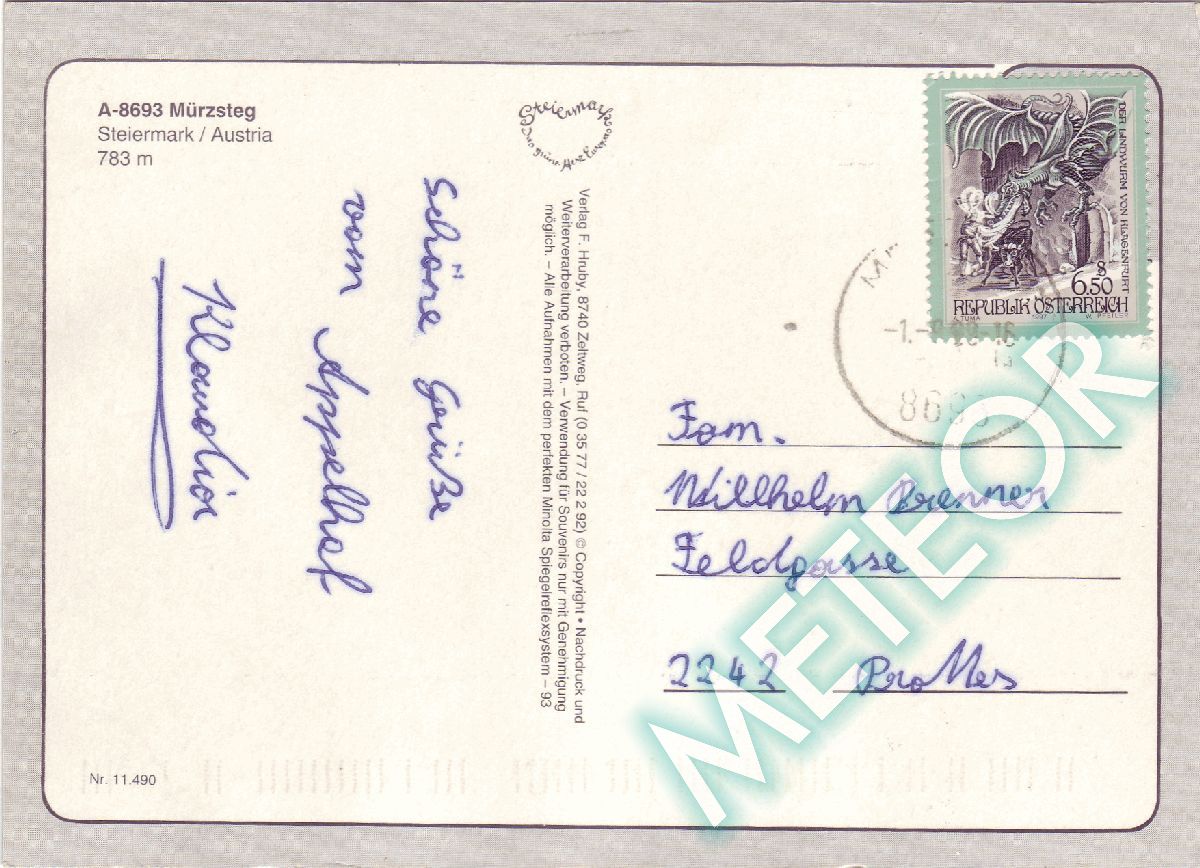 A-8693 Mürzsteg
Steiermark / Austria
783 m
Steiermark
Das grüne Herz Europas
Schöne Grüße
vom Appelhof
Klaudia
Verlag F. Hruby, 8740 Zeltweg, Ruf (0 35 77 / 22 2 92) © Copyright • Nachdruck und
Weiterverarbeitung verboten. – Verwendung für Souvenirs nur mit Genehmigung
möglich. – Alle Aufnahmen mit dem perfekten Minolta Spiegelreflexsystem – 93
DER LINDWURM VON KLAGENFURT
S
6.50
REPUBLIK ÖSTERREICH
A. TUMA 1997 W. PFEILER
8693
Fam.
Willhelm Brenner
Feldgasse
2242 Prottes
METEOR
Nr. 11.490